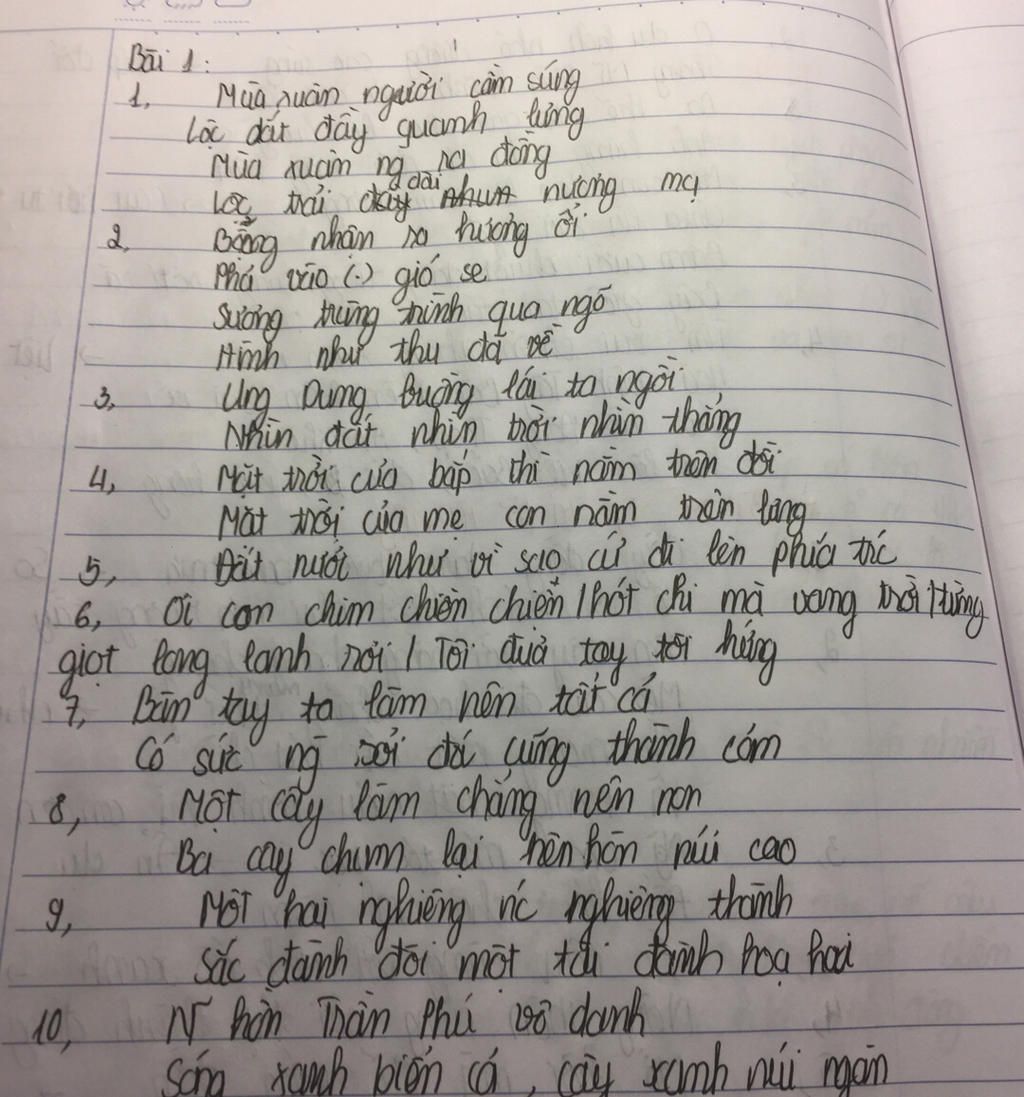 Bài 1:
1, Mùa xuân người cầm súng
Lộc dắt đầy quanh lưng
Mùa xuân ng ra đồng
Lộc trải dài nương mạ
2, Bỗng nhận ra hương ổi
Phả vào (.) gió se
Sương trùng trình qua ngõ
Hình như thu đã về
3, Ung Dung buồng lái ta ngồi
Nhìn đất nhìn trời nhìn thẳng
4, Mặt trời của bắp thì nằm trên đồi
Mặt trời của mẹ con nằm trên lưng
5, Đất nước như vì sao cứ đi lên phía trc
6, Ơi con chim chiền chiện / hót chi mà vang trời / từng
giọt long lanh rơi / Tôi đưa tay tôi hứng
7, Bàn tay ta làm nên tất cả
Có sức ng sỏi đá cũng thành cơm
8, Một cây làm chẳng nên non
Ba cây chụm lại nên hòn núi cao
9, Một hai nghiêng nc nghiêng thành
Sắc đành đòi một tài đành hoạ hai
10, N~ hồn Trần Phú vô danh
Sóng xanh biển cả, cây xanh núi ngàn